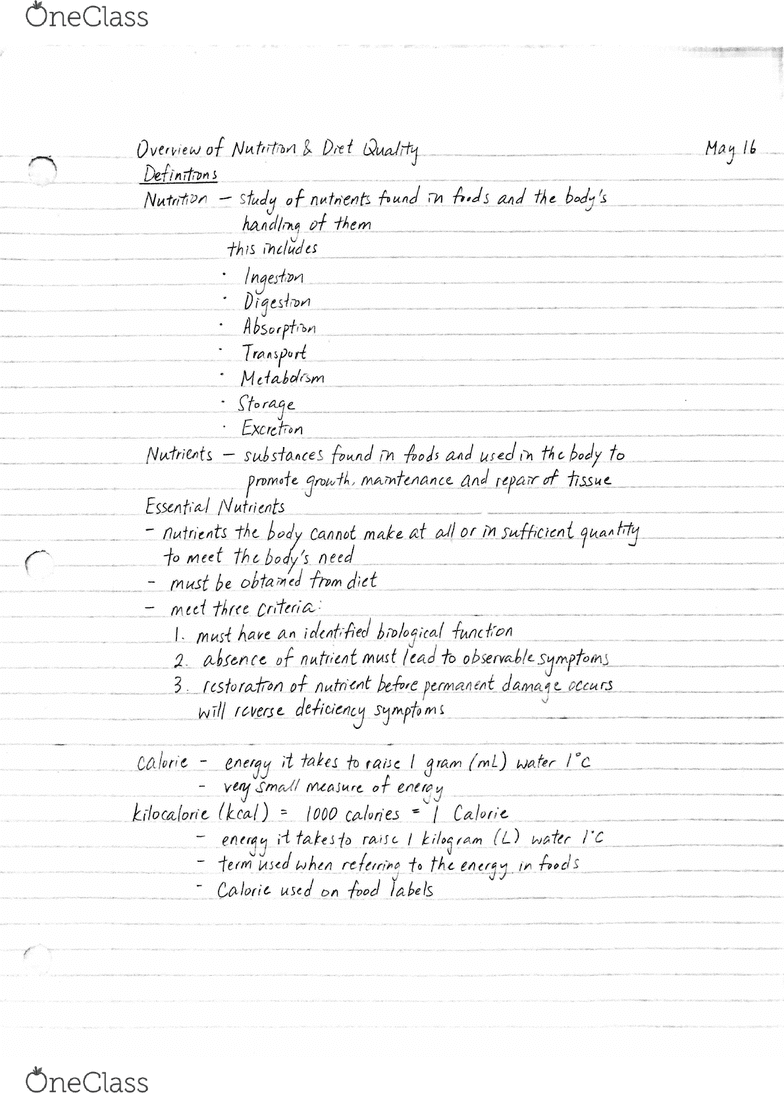 OneClass
Overview of Nutrition & Diet Quality May 16
Definitions
Nutrition – study of nutrients found in foods and the body's
handling of them
this includes
· Ingestion
· Digestion
· Absorption
· Transport
· Metabolism
· Storage
· Excretion
Nutrients – substances found in foods and used in the body to
promote growth, maintenance and repair of tissue
Essential Nutrients
– nutrients the body cannot make at all or in sufficient quantity
to meet the body's need
– must be obtained from diet
– meet three criteria:
1. must have an identified biological function
2. absence of nutrient must lead to observable symptoms
3. restoration of nutrient before permanent damage occurs
will reverse deficiency symptoms
calorie – energy it takes to raise 1 gram (mL) water 1°C
– very small measure of energy
kilocalorie (kcal) = 1000 calories = 1 Calorie
– energy it takes to raise 1 kilogram (L) water 1°C
– term used when referring to the energy in foods
– Calorie used on food labels
OneClass